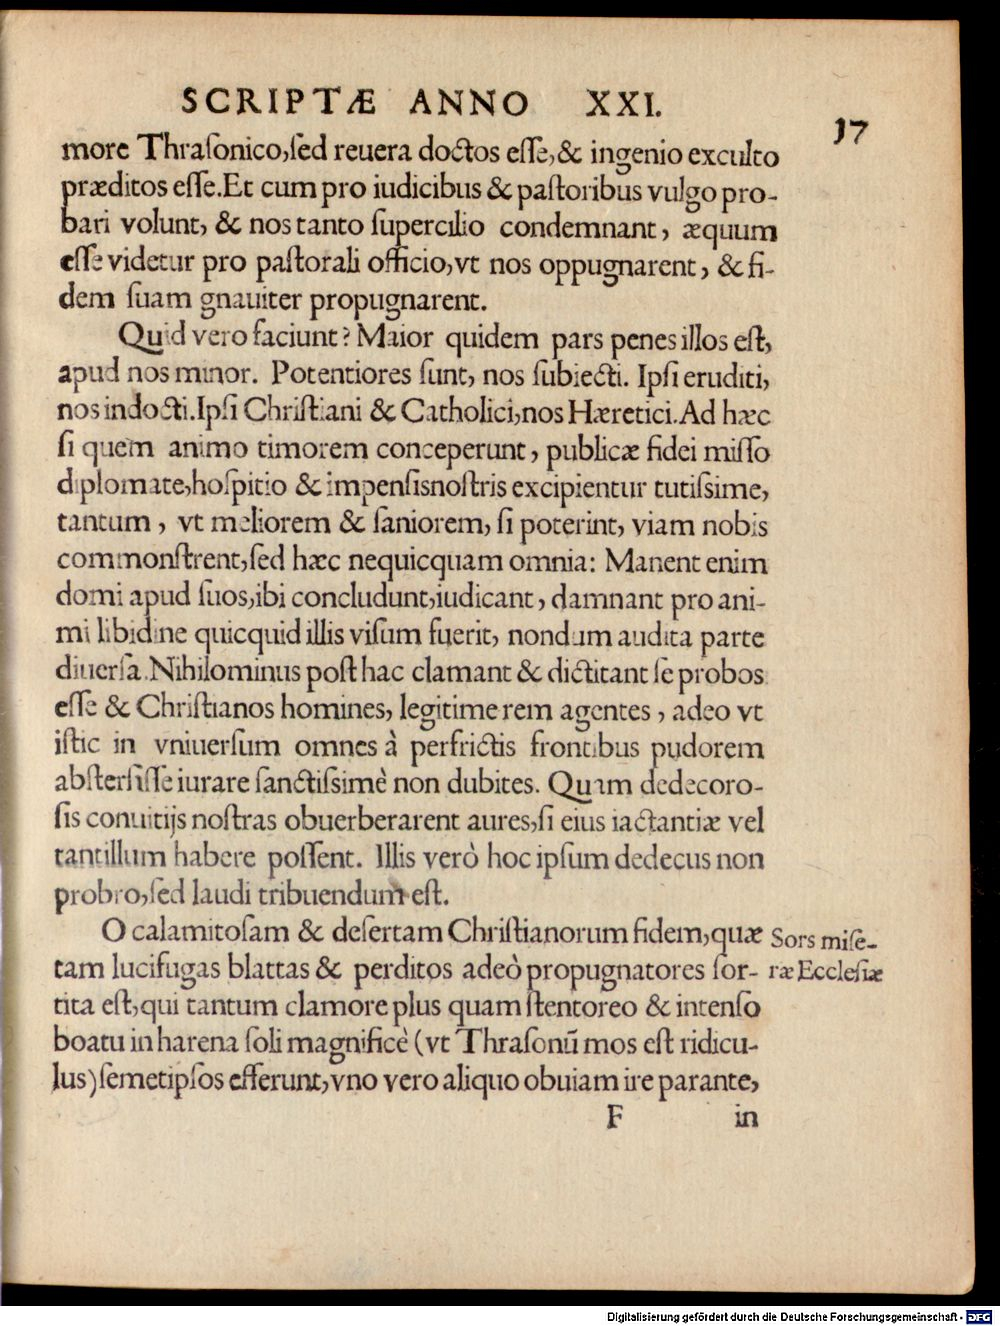 SCRIPTÆ ANNO XXI.
17
more Thraſonico,ſed reuera doctos eſſe,& ingenio exculto
præditos eſſe.Et cum pro iudicibus & paſtoribus vulgo pro-
bari volunt, & nos tanto ſupercilio condemnant, æquum
eſſe videtur pro paſtorali officio,vt nos oppugnarent, & fi-
dem ſuam gnauiter propugnarent.
Quid vero faciunt? Maior quidem pars penes illos eſt,
apud nos minor. Potentiores ſunt, nos ſubiecti. Ipſi eruditi,
nos indocti.Ipſi Chriſtiani & Catholici,nos Hæretici.Ad hæc
ſi quem animo timorem conceperunt, publicæ fidei miſſo
diplomate,hoſpitio & impenſisnoſtris excipientur tutiſsime,
tantum, vt meliorem & ſaniorem, ſi poterint, viam nobis
commonſtrent,ſed hæc nequicquam omnia: Manent enim
domi apud ſuos,ibi concludunt,iudicant, damnant pro ani-
mi libidine quicquid illis viſum fuerit, nondum audita parte
diuerſa.Nihilominus poſt hac clamant & dictitant ſe probos
eſſe & Chriſtianos homines, legitime rem agentes, adeo vt
iſtic in vniuerſum omnes à perfrictis frontibus pudorem
abſterſiſſe iurare ſanctiſsimè non dubites. Quam dedecoro-
ſis conuitijs noſtras obuerberarent aures,ſi eius iactantiæ vel
tantillum habere poſſent. Illis verò hoc ipſum dedecus non
probro,ſed laudi tribuendum eſt.
O calamitoſam & deſertam Chriſtianorum fidem,quæ
tam lucifugas blattas & perditos adeò propugnatores ſor-
tita eſt,qui tantum clamore plus quam ſtentoreo & intenſo
boatu in harena ſoli magnificè (vt Thraſonũ mos eſt ridicu-
lus)ſemetipſos efferunt,vno vero aliquo obuiam ire parante,
Sors miſe-
ræ Eccleſiæ
F in
Digitalisierung gefördert durch die Deutsche Forschungsgemeinschaft - DFG